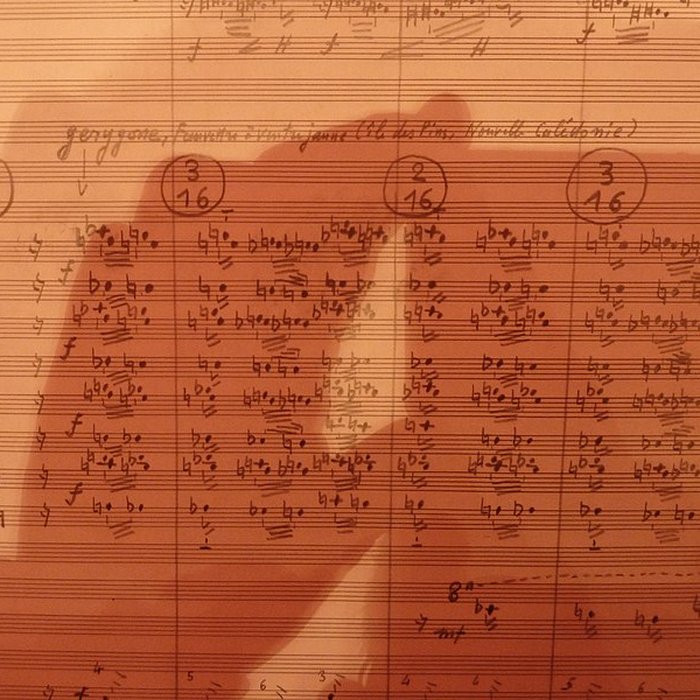 f f f
gerygone, Fauvette à ventre jaune (île des Pins, Nouvelle Calédonie)
3 2 3
16 16 16
f
f
f
f
8ª
mf
4 5 6 3 4 4 5 6